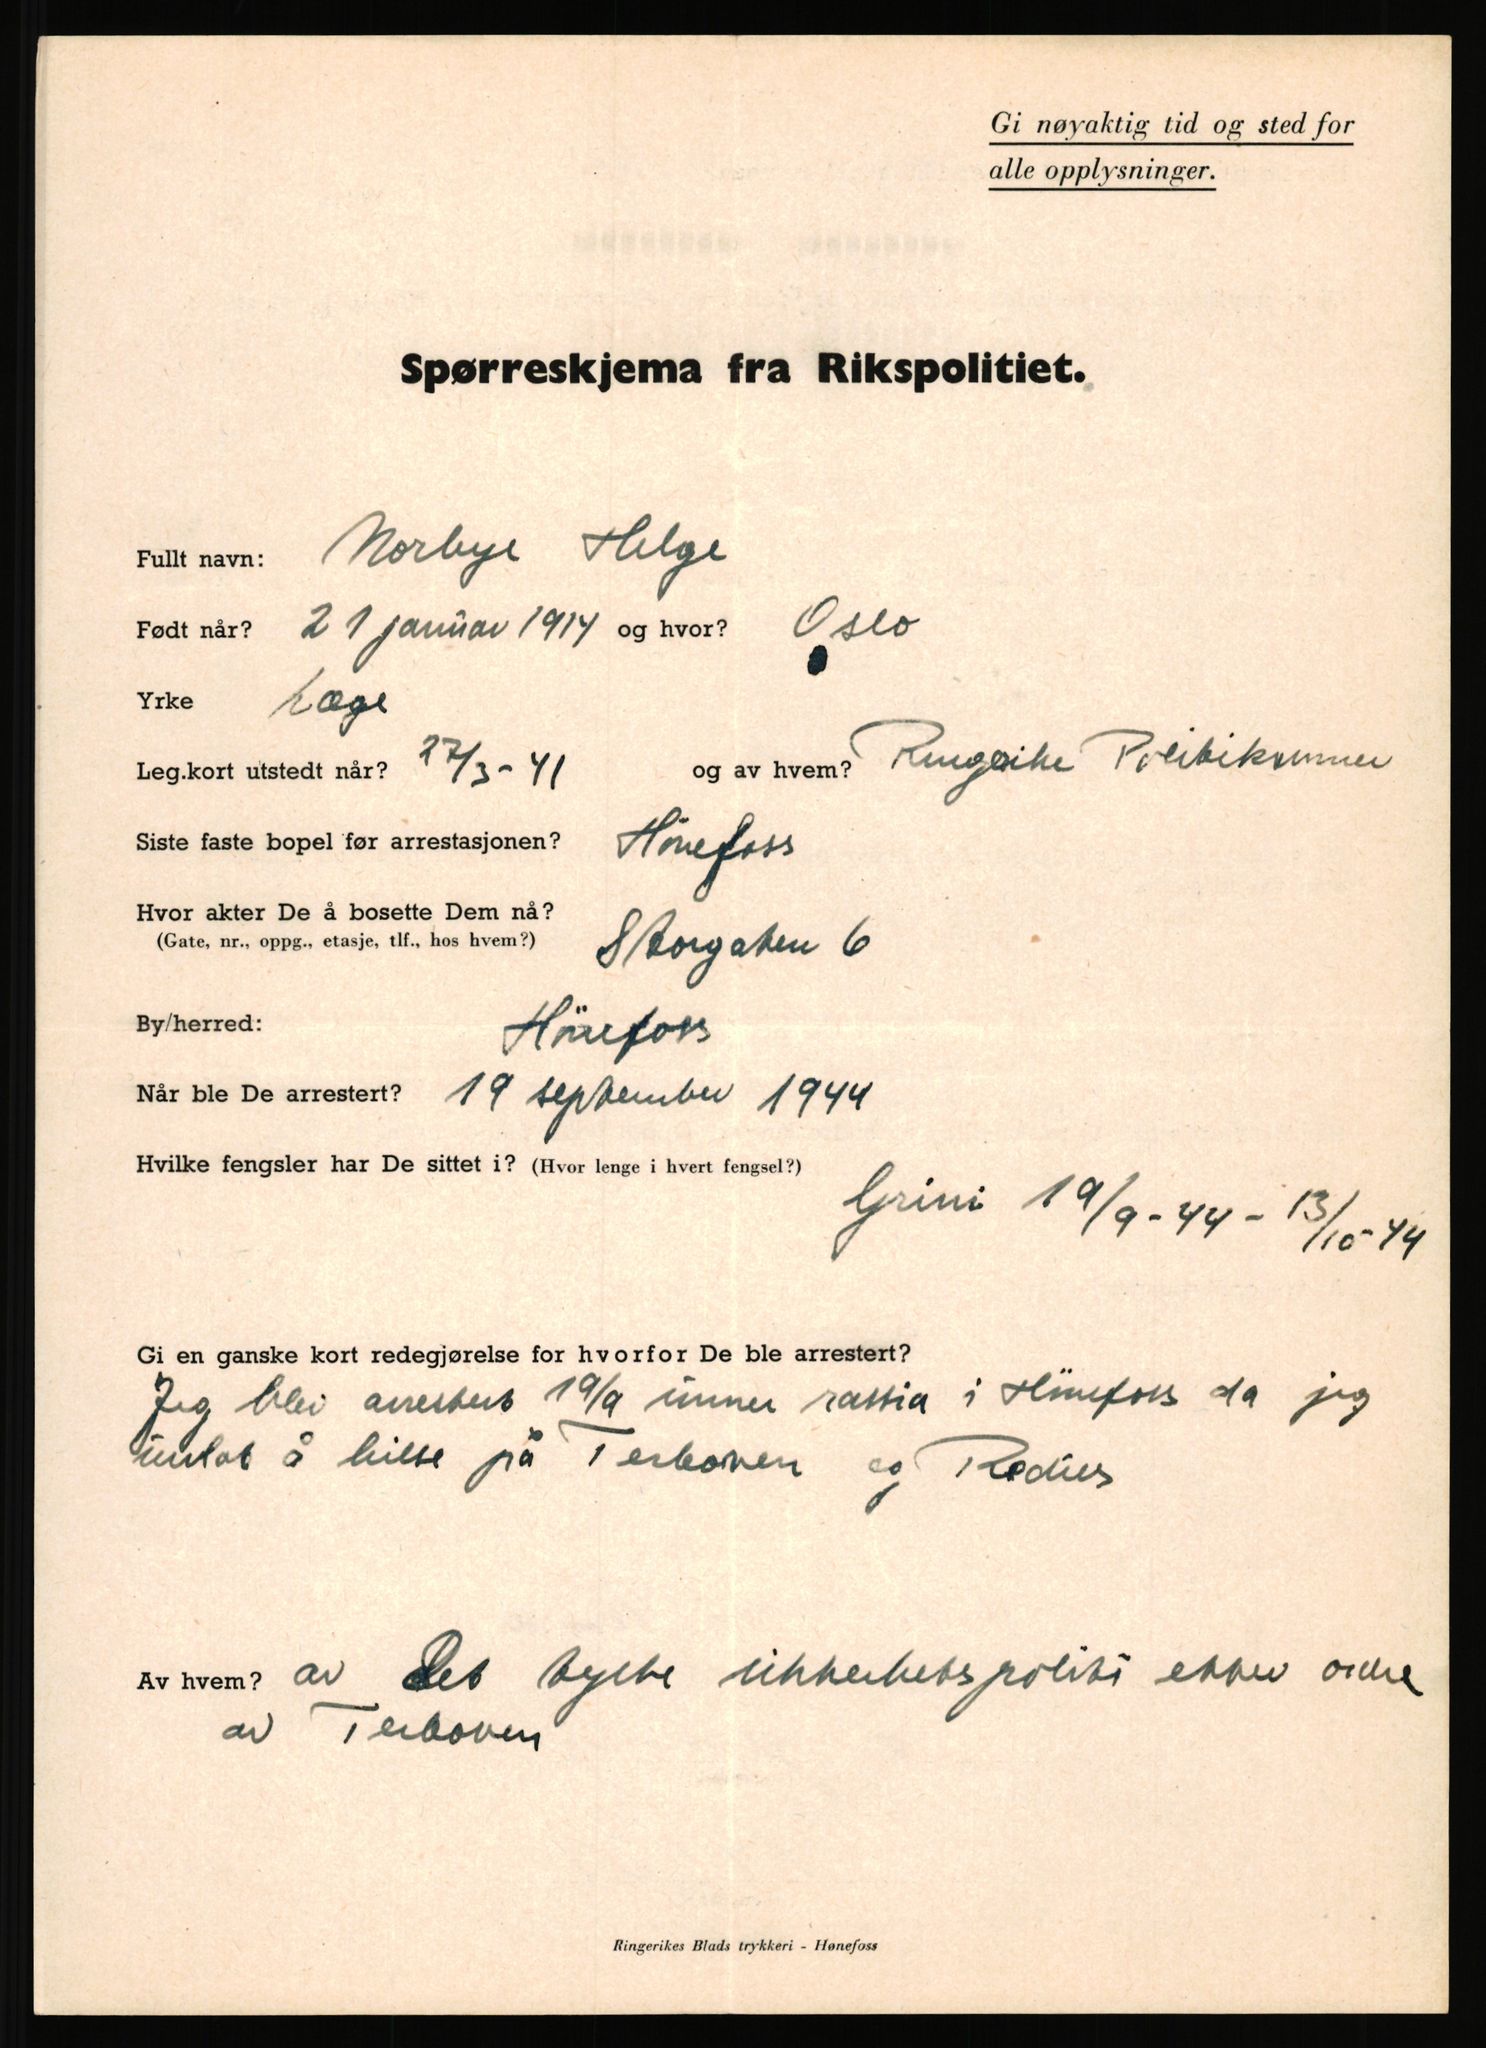 Gi nøyaktig tid og sted for
alle opplysninger.
Spørreskjema fra Rikspolitiet.
Fullt navn: Norbye Helge
Født når? 21 januar 1914 og hvor? Oslo
Yrke Læge
Leg.kort utstedt når? 27/3-41 og av hvem? Ringerike Politikammer
Siste faste bopel før arrestasjonen? Hönefoss
Hvor akter De å bosette Dem nå?
(Gate, nr., oppg., etasje, tlf., hos hvem?) Storgaten 6
By/herred: Hönefoss
Når ble De arrestert? 19 september 1944
Hvilke fengsler har De sittet i? (Hvor lenge i hvert fengsel?)
Grini 19/9-44 - 13/10-44
Gi en ganske kort redegjørelse for hvorfor De ble arrestert?
Jeg blei arrestert 19/9 unner rassia i Hönefoss da jeg
unlot å hilse på Terboven og Redies
Av hvem? av Det tyske sikkerhetspoliti etter ordre
av Terboven
Ringerikes Blads trykkeri - Hønefoss